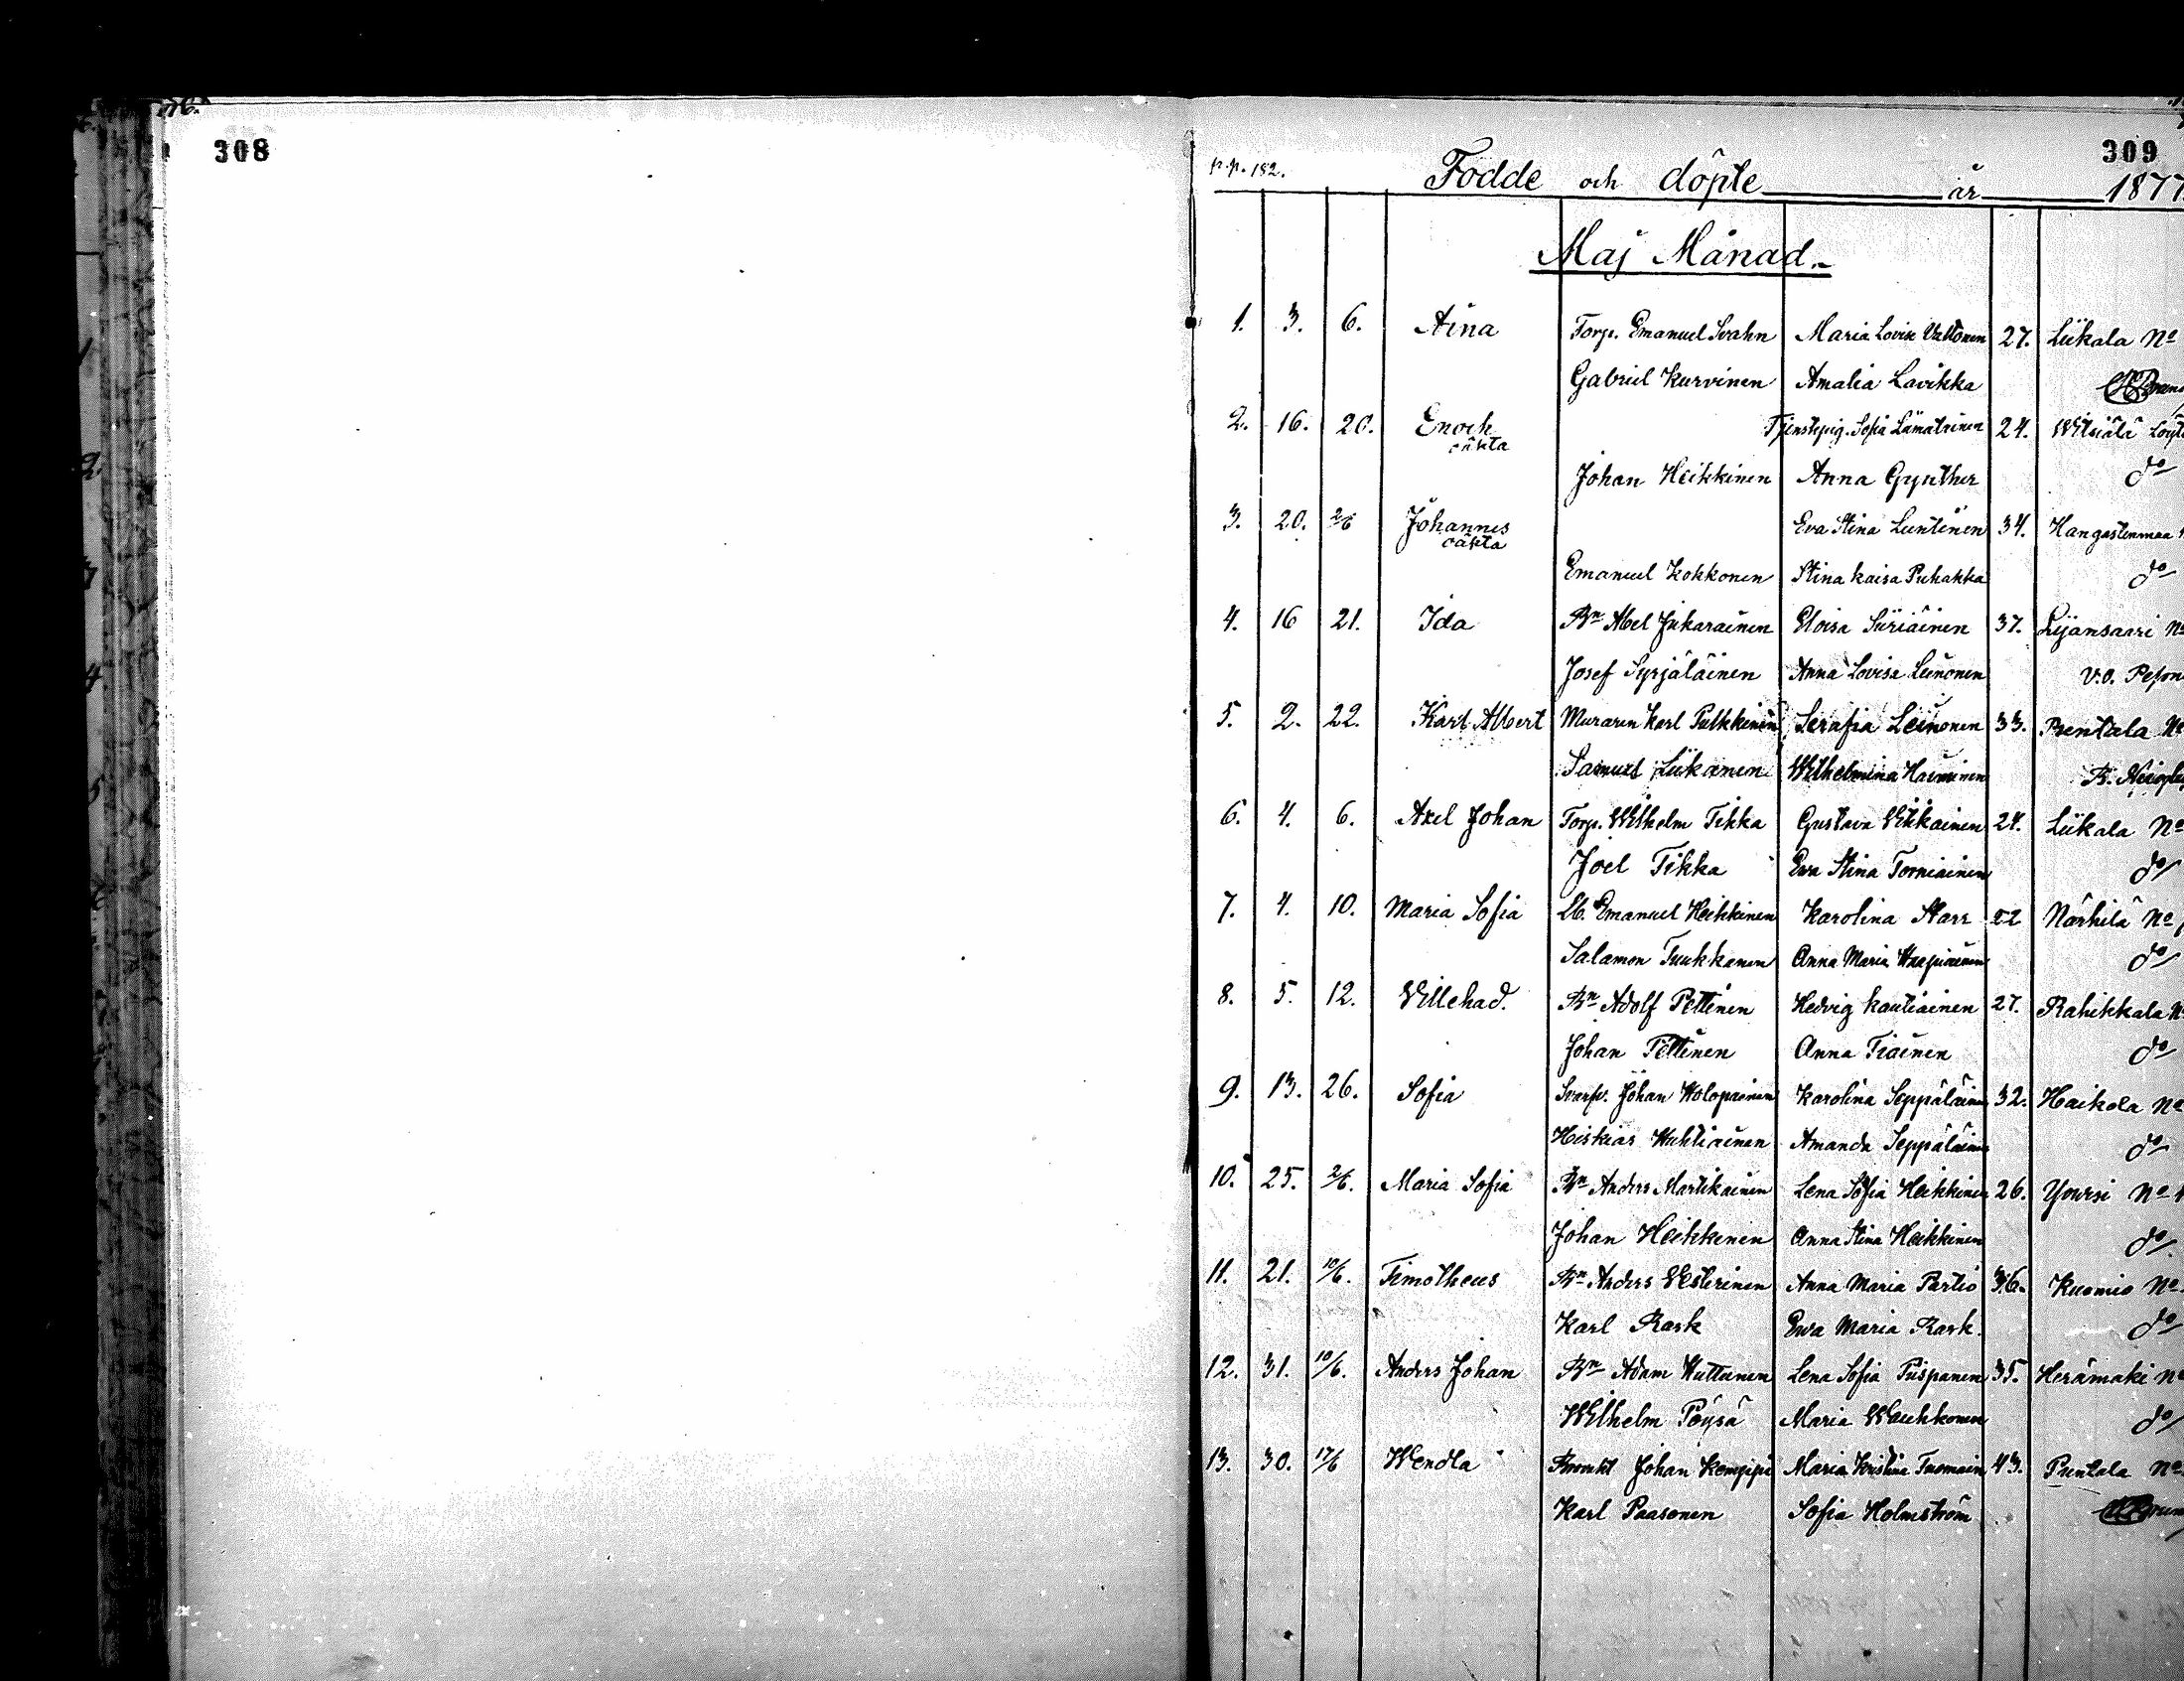 308
309
p.p. 182. Födde och döpte år 1877
Maj Månad.
1. 3. 6. Aina Torp. Emanuel Svahn Maria Lovisa Valtonen 27. Liikala No
Gabriel Kurvinen Amalia Lavikka
2. 16. 20. Enoch Tjenstepig. Sofia Liimatainen 24. Witsiälä
oäkta
Johan Heikkinen Anna Gynther do
3. 20. 2/6 Johannes Eva Stina Luntinen 34. Hangastenmaa
oäkta
Emanuel Kokkonen Stina Kaisa Puhakka do
4. 16 21. Ida Bn Abel Jukarainen Eloisa Siiriäinen 37. Lijansaari No
Josef Syrjäläinen Anna Lovisa Leinonen v.o.
5. 2. 22. Karl Albert Muraren Karl Pulkkinen Serafia Leinonen 33. Pentala No
Samuel Liikanen Wilhelmina Haiminen
6. 4. 6. Axel Johan Torp. Wilhelm Tikka Gustava Wikkainen 24. Liikala No
Joel Tikka Eva Stina Torniainen do
7. 4. 10. Maria Sofia Lb. Emanuel Heikkinen Karolina Starr 22 Närhilä No
Salamon Tuukkanen Anna Maria do
8. 5. 12. Villehad. Bn Adolf Pettinen Hedvig Kautiainen 27. Rahikkala No
Johan Pettinen Anna Tiainen do
9. 13. 26. Sofia Johan Holopainen Karolina Seppäläinen 32. Haikola No
Hiskias Huhtiainen Amanda Seppäläinen do
10. 25. 2/6. Maria Sofia Bn Anders Martikainen Lena Sofia Heikkinen 26. Yövesi No
Johan Heikkinen Anna Stina Heikkinen do
11. 21. 10/6. Timotheus Bn Anders Vesterinen Anna Maria Partio 36. Kuomio No
Karl Rask Eva Maria Rask. do
12. 31. 10/6. Anders Johan Bn Adam Huttunen Lena Sofia Piispanen 35. Herämäki No
Wilhelm Pöysä Maria Wauhkonen do
13. 30. 17/6 Wendla Johan Kemppi Maria Kristina 43. Pentala No
Karl Paasonen Sofia Holmström